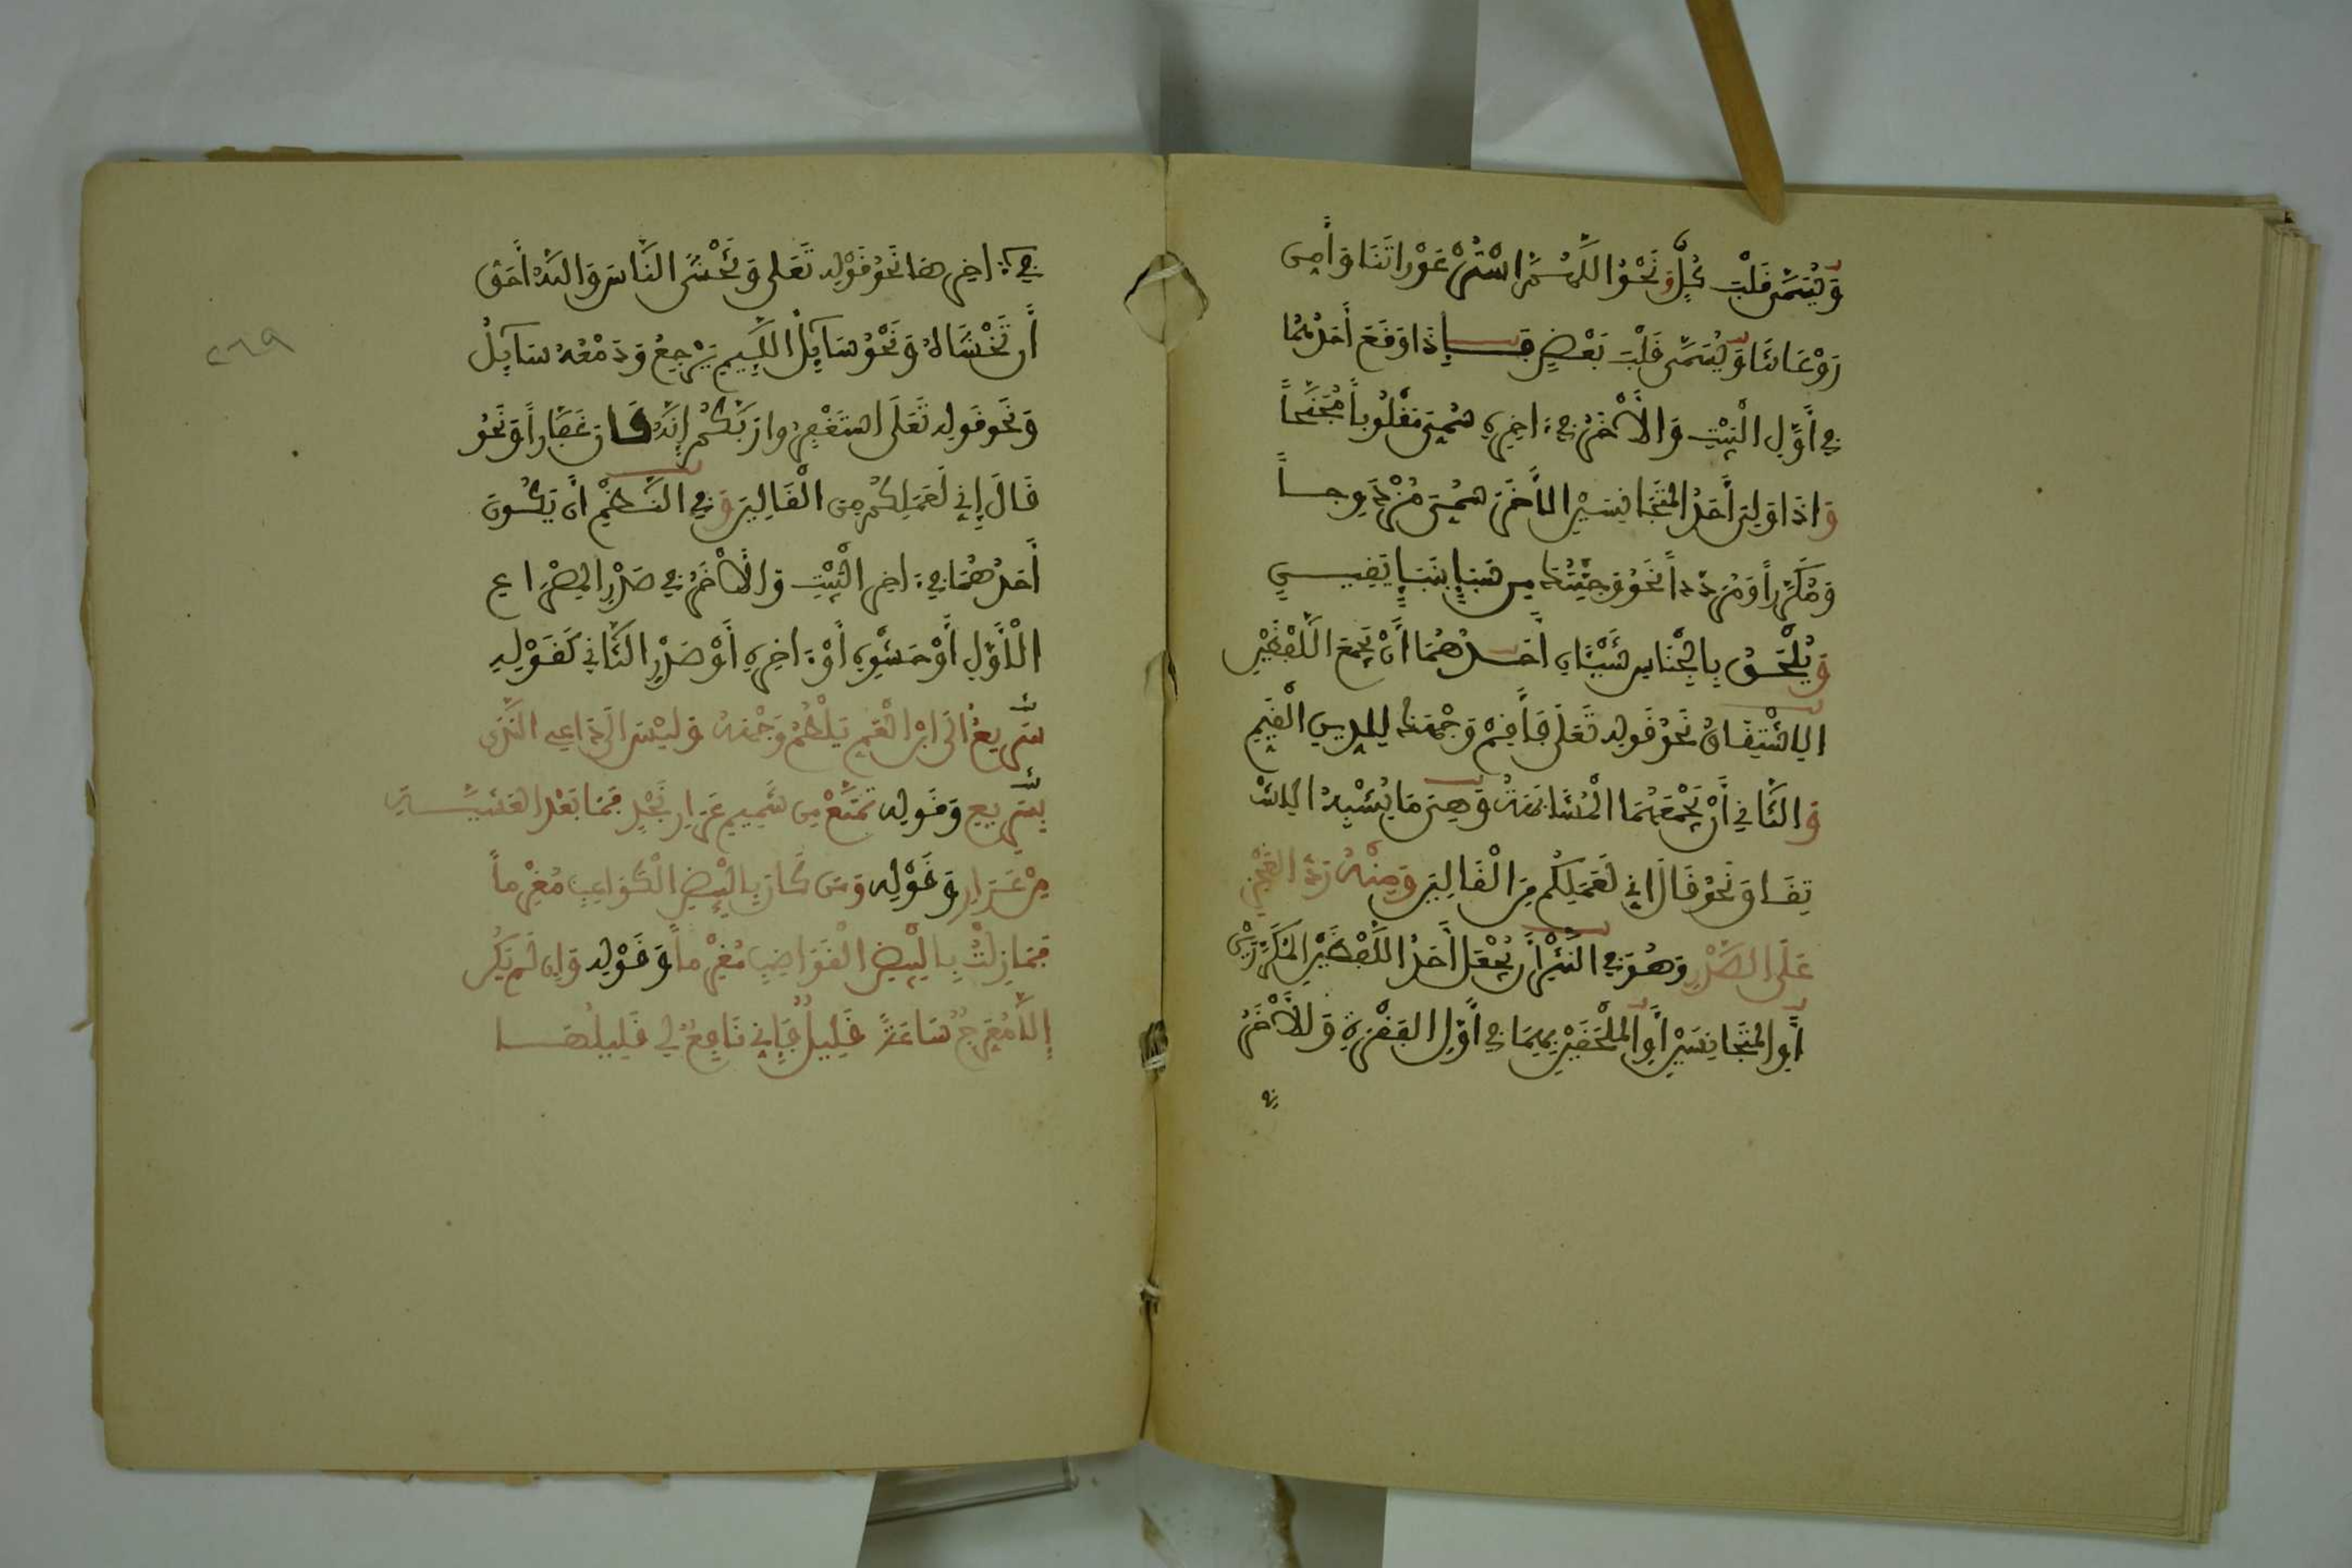 وَيُسَمَّى قَلْبَ كُلٍّ وَنَحْوُ اللَّهُمَّ اسْتُرْ عَوْرَاتِنَا وَأَمِن
رَوْعَاتِنَا وَيُسَمَّى قَلْبَ بَعْضٍ وَإِذَا وَقَعَ أَحَدُهُمَا
فِي أَوَّلِ الْبَيْتِ وَالْأَخَرُ فِي ءَاخِرِهِ سُمِّيَ مَقْلُوباً مُجَنَّحاً
وَإِذَا وَلِيَ أَحَدُ الْمُتَجَانِسَيْنِ الْأَخَرَ سُمِّيَ مُزْدَوِجاً
وَمُكَرَّراً وَمُرَدَّداً نَحْوُ وَجِئْتُكَ مِن سَبَإٍ بِنَبَإٍ يَقِينٍ
وَيُلْحَقُ بِالْجِنَاسِ شَيْئَانِ أَحَدُهُمَا أَنْ يَجْمَعَ اللَّفْظَيْنِ
الِاشْتِقَاقُ نَحْوُ قَوْلِهِ تَعَلَى فَأَقِمْ وَجْهَكَ لِلدِّينِ الْقَيِّمِ
وَالثَّانِي أَنْ يَجْمَعَهُمَا الْمُشَابَهَةُ وَهِيَ مَا يُشْبِهُ الِاشْ
تِقَاقَ نَحْوُ قَالَ إِنِّي لِعَمَلِكُم مِّنَ الْقَالِينَ وَمِنْهُ رَدُّ الْعَجُزِ
عَلَى الصَّدْرِ وَهُوَ فِي النَّثْرِ أَن يُجْعَلَ أَحَدُ اللَّفْظَيْنِ الْمُكَرَّرَيْنِ
أَوِ الْمُتَجَانِسَيْنِ أَوِ الْمُلْحَقَيْنِ بِهِمَا فِي أَوَّلِ الْفَقْرَةِ وَالْأَخَرُ
في
فِي ءَاخِرِهَا نَحْوُ قَوْلِهِ تَعَلَى وَتَخْشَى النَّاسَ وَاللَّهُ أَحَقُّ
أَن تَخْشَاهُ وَنَحْوُ سَآئِلُ اللَّئِيمِ يَرْجِعُ وَدَمْعُهُ سَآئِلٌ
وَنَحْوُ قَوْلِهِ تَعَلَى اسْتَغْفِرُوا رَبَّكُمْ إِنَّهُ كَانَ غَفَّاراً وَنَحْوُ
قَالَ إِنِّي لِعَمَلِكُم مِّنَ الْقَالِينَ وَفِي النَّظْمِ أَن يَكُونَ
أَحَدُهُمَا فِي ءَاخِرِ الْبَيْتِ وَالْأَخَرُ فِي صَدْرِ الْمِصْرَاعِ
الْأَوَّلِ أَوْ حَشْوِهِ أَوْ ءَاخِرِهِ أَوْ صَدْرِ الثَّانِي كَقَوْلِهِ
سَرِيعٌ إِلَى ابْنِ الْعَمِّ يَلْطِمُ وَجْهَهُ وَلَيْسَ إِلَى دَاعِي النَّدَى
بِسَرِيعٍ وَقَوْلِهِ تَمَتَّعْ مِن شَمِيمِ عَرَارِ نَجْدٍ فَمَا بَعْدَ الْعَشِيَّةِ
مِنْ عَرَارِ وَقَوْلِهِ وَمَن كَانَ بِالْبِيضِ الْكَوَاعِبِ مُغْرَماً
فَمَا زِلْتُ بِالْبِيضِ الْقَوَاضِبِ مُغْرَماً وَقَوْلِهِ وَإِن لَّمْ يَكُن
إِلَّا مُعَرَّجُ سَاعَةٍ قَلِيلٌ فَإِنِّي نَافِعٌ لِي قَلِيلُهَا
٢٦٩